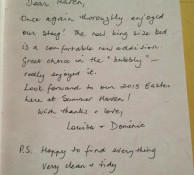 Dear Karen,
Once again thoroughly enjoyed
our stay! The new king size bed
is a comfortable new addition.
Great choice in the "bubbly" –
really enjoyed it.
Look forward to our 2015 Easter
here at Summer Haven!
With thanks + love,
Louisa + Dominic
P.S. Happy to find everything
very clean + tidy